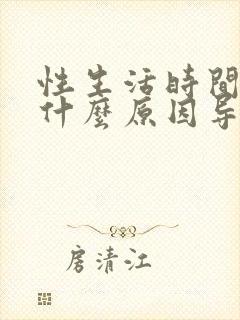 性生活時間
什麼原因导
房清江